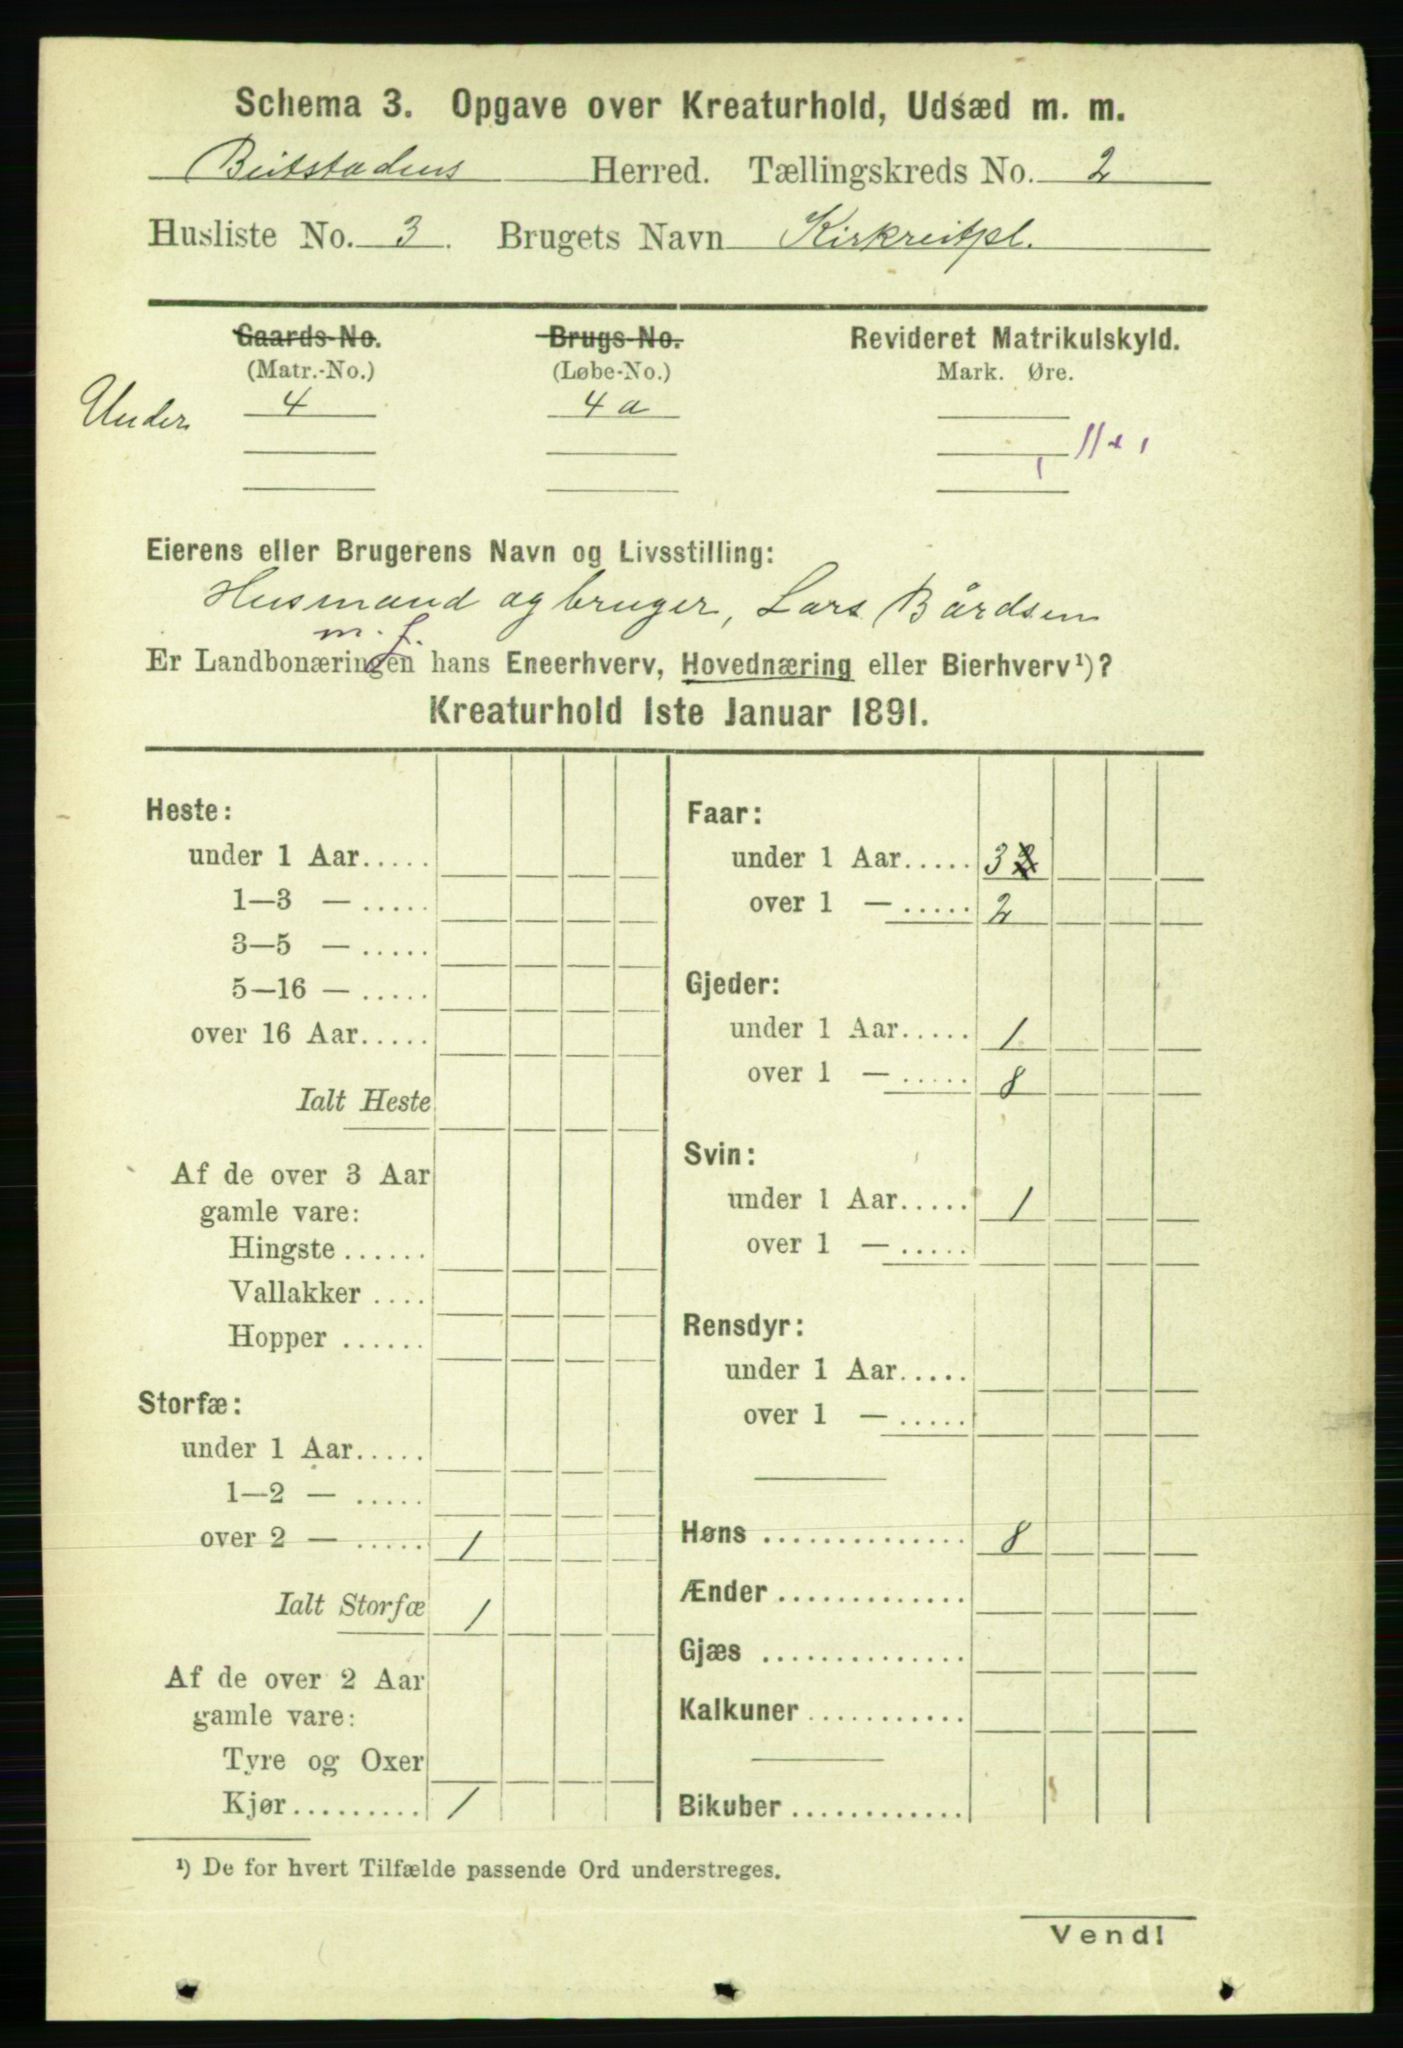 Schema 3. Opgave over Kreaturhold, Udsæd m. m.
Beitstadens Herred. Tællingskreds No. 2
Husliste No. 3. Brugets Navn Kirkreitpl.
Gaards-No. Brugs-No. Revideret Matrikulskyld.
(Matr.-No.) (Løbe-No.) Mark. Øre.
Under 4 4 a
Eierens eller Brugerens Navn og Livsstilling:
Husmand og bruger, Lars Bårdsen
m. f.
Er Landbonæringen hans Eneerhverv, Hovednæring eller Bierhverv¹)?
Kreaturhold 1ste Januar 1891.
Heste:
under 1 Aar.....
1—3 — .....
3—5 — .....
5—16 — .....
over 16 Aar.....
Ialt Heste
Af de over 3 Aar
gamle vare:
Hingste ......
Vallakker ....
Hopper ......
Storfæ:
under 1 Aar.....
1—2 — .....
over 2 — ..... 1
Ialt Storfæ 1
Af de over 2 Aar
gamle vare:
Tyre og Oxer
Kjør......... 1
Faar:
under 1 Aar..... 3
over 1 — ..... 2
Gjeder:
under 1 Aar..... 1
over 1 — ..... 8
Svin:
under 1 Aar..... 1
over 1 — .....
Rensdyr:
under 1 Aar.....
over 1 — .....
Høns .............. 8
Ænder .............
Gjæs ..............
Kalkuner ...........
Bikuber ............
¹) De for hvert Tilfælde passende Ord understreges.
Vend!